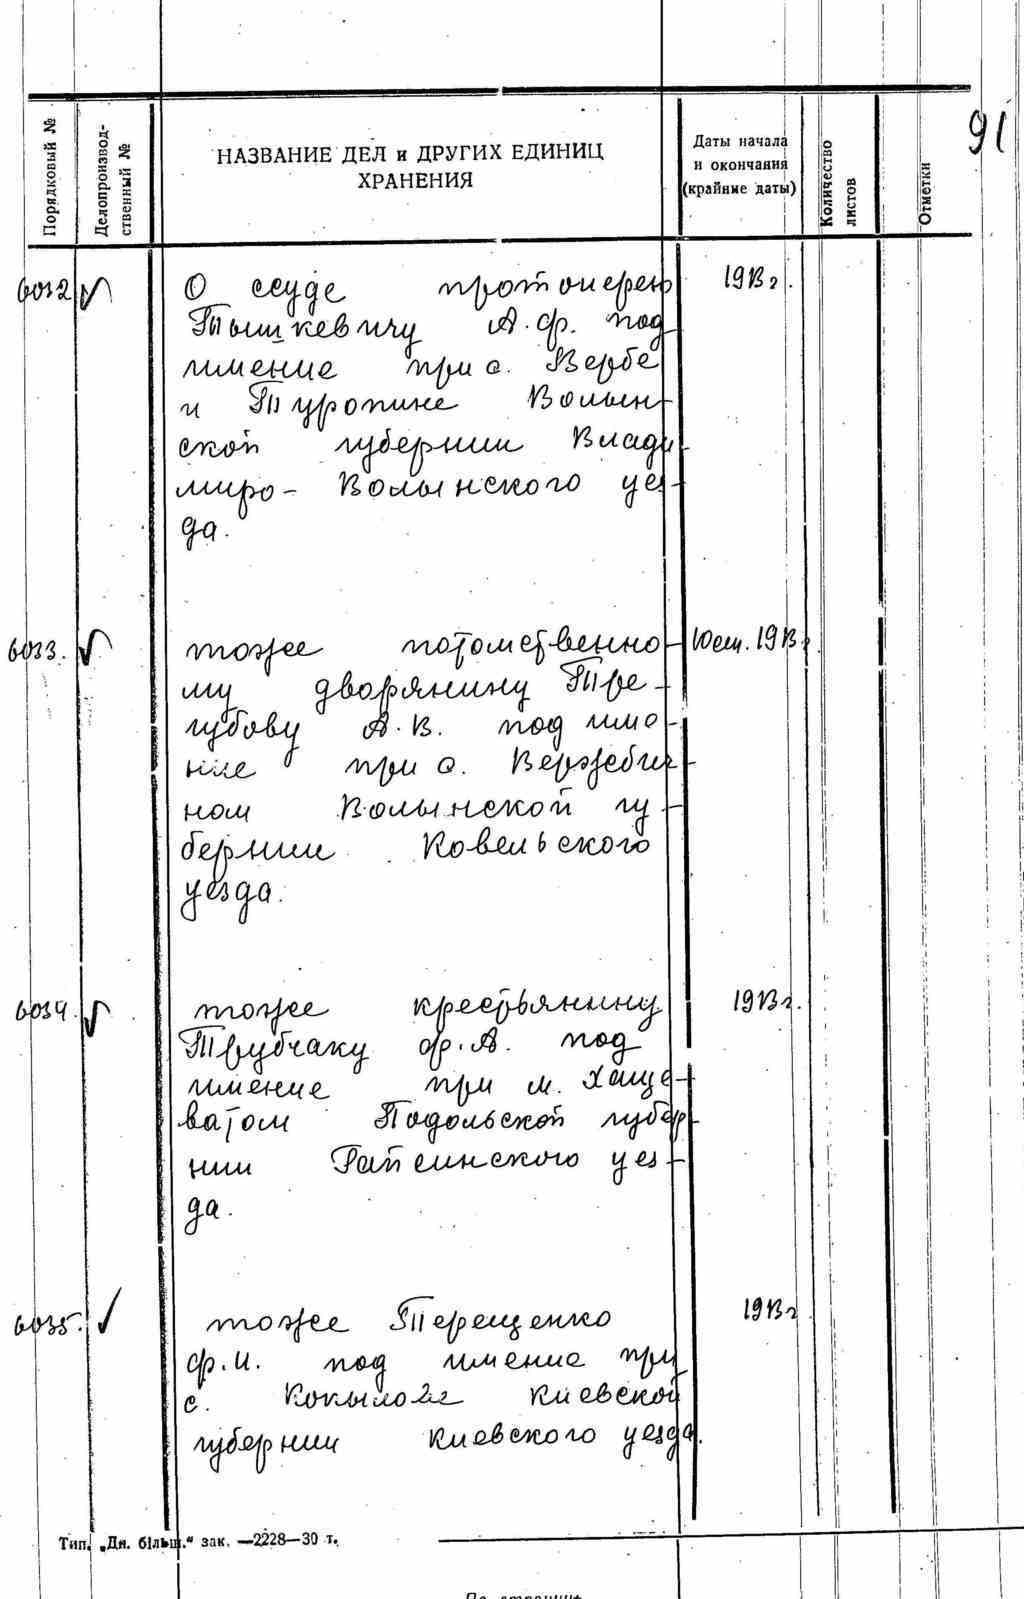 91
Порядковый №
Делопроизвод-
ственный №
НАЗВАНИЕ ДЕЛ и ДРУГИХ ЕДИНИЦ
ХРАНЕНИЯ
Даты начала
и окончания
(крайние даты)
Количество
листов
Отметки
6032 О ссуде протоиерею 1913 г.
Тышкевичу А.Ф. под
имение при с. Вербе
и Туропине Волын-
ской губернии Влади
миро-Волынского уез-
да.
6033. тоже потомственно- 1913 г.
му дворянину Тре-
губову А.В. под име-
ние при с. Вержбич-
ном Волынской гу-
бернии Ковельского
уезда.
6034. тоже крестьянину 1913 г.
Трубчаку Ф.А. под
имение при м. Хаще-
ватом Подольской губер-
нии Гайсинского уез-
да.
6035. тоже Терещенко 1913 г.
Ф.И. под имение при
с. Киевской
губернии Киевского уезда.
Тип. „Дн. більш.“ зак. —2228—30 т.